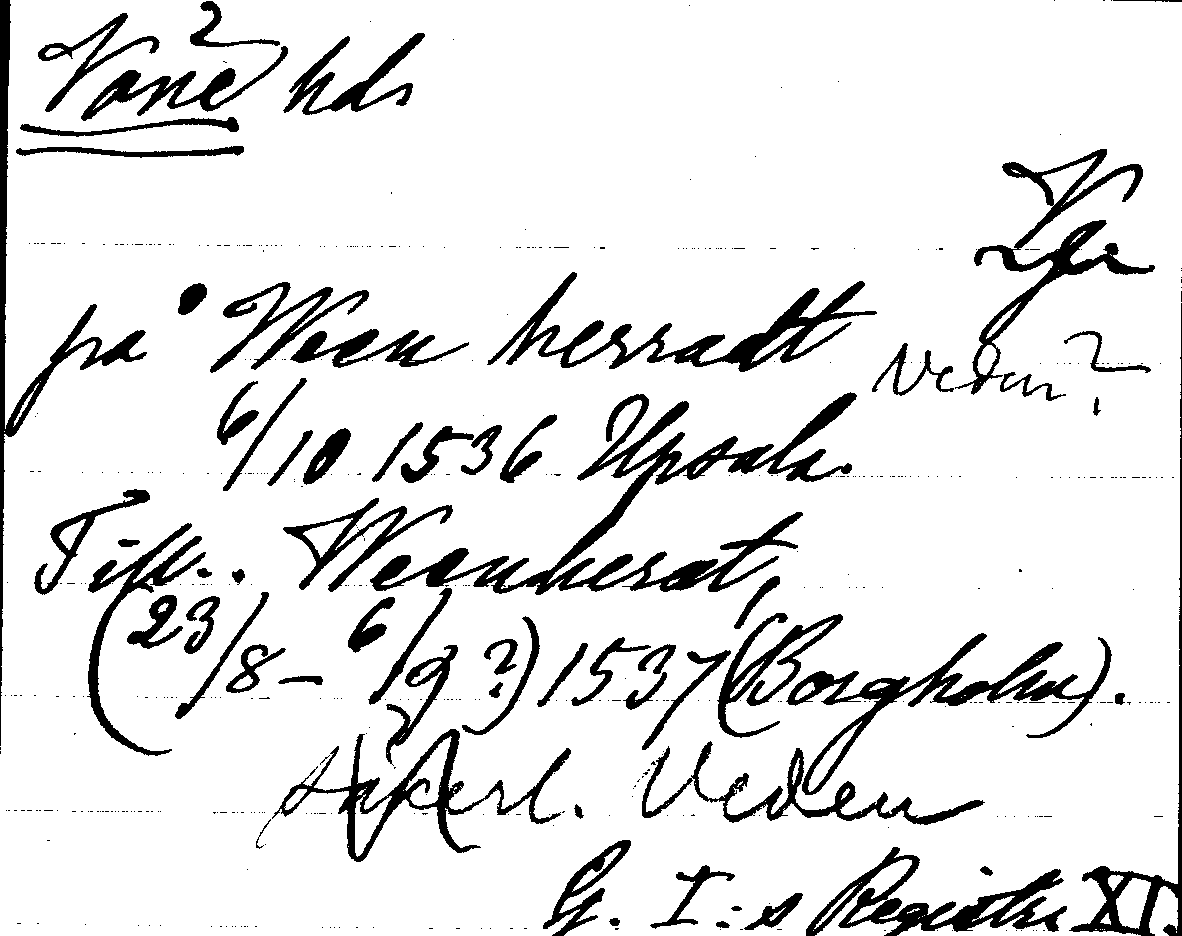 Vane hds
?
Vgr
på Ween herradt
Vedin?
6/10 1536 Upsala.
Till.. Weenherat,
(23/8 – 6/9?) 1537 (Borgholm).
säkerl. Veden
G. I:s Registr. XI.